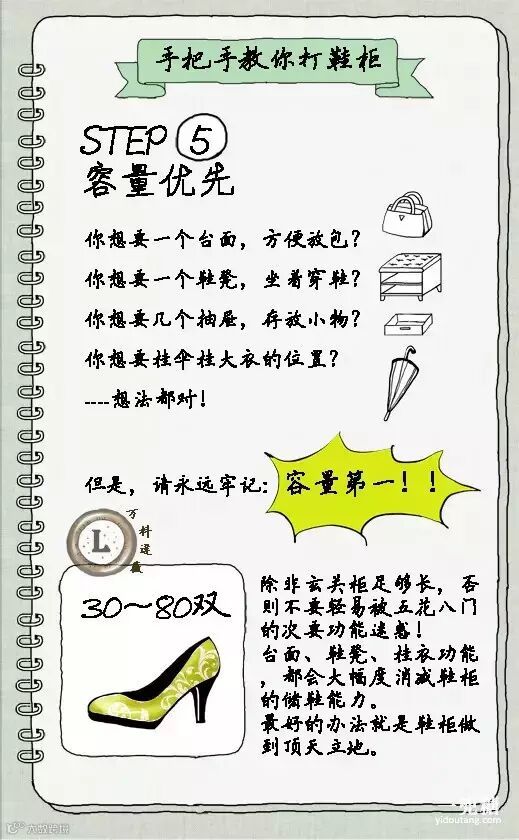 手把手教你打鞋柜
STEP ⑤
容量优先
你想要一个台面，方便放包？
你想要一个鞋凳，坐着穿鞋？
你想要几个抽屉，存放小物？
你想要挂伞挂大衣的位置？
----想法都对！
但是，请永远牢记：容量第一！！
L
万
科
30～80双
除非玄关柜足够长，否
则不要轻易被五花八门
的次要功能迷惑！
台面、鞋凳、挂衣功能
，都会大幅度消减鞋柜
的储鞋能力。
最好的办法就是鞋柜做
到顶天立地。
大数跨境
yidoutang.com